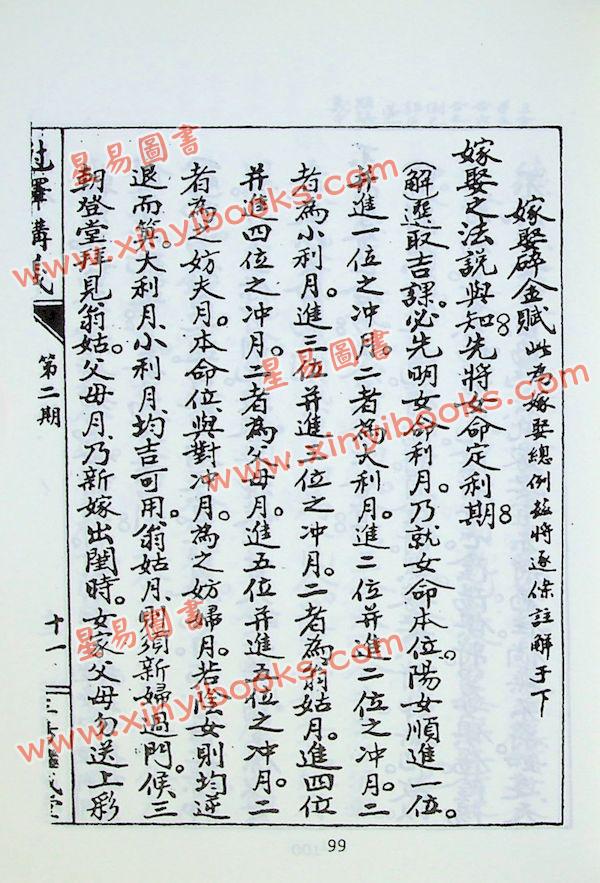 嫁娶碎金賦此為嫁娶總例茲將逐條註解于下
嫁娶之法說與知。先將女命定利期。
(解選取吉課。必先明女命利月。乃就女命本位。陽女順進一位。
并進一位之冲月。二者為大利月。進二位并進二位之冲月。二
者為小利月。進三位并進三位之冲月。二者為翁姑月。進四位
并進四位之冲月。二者為父母月。進五位并進五位之冲月。二
者為之妨夫月。本命位與對冲月。為之妨婦月。若陰女則均逆
退而算。大利月。小利月。均吉可用。翁姑月。則須新婦過門。候三
朝登堂拜見翁姑。父母月。乃新嫁出閨時。女家父母勿送上彩
講義
第二期
十一
堂
99
星易圖書
www.xinyibooks.com
星易圖書
www.xinyibooks.com
星易圖書
www.xinyibooks.com